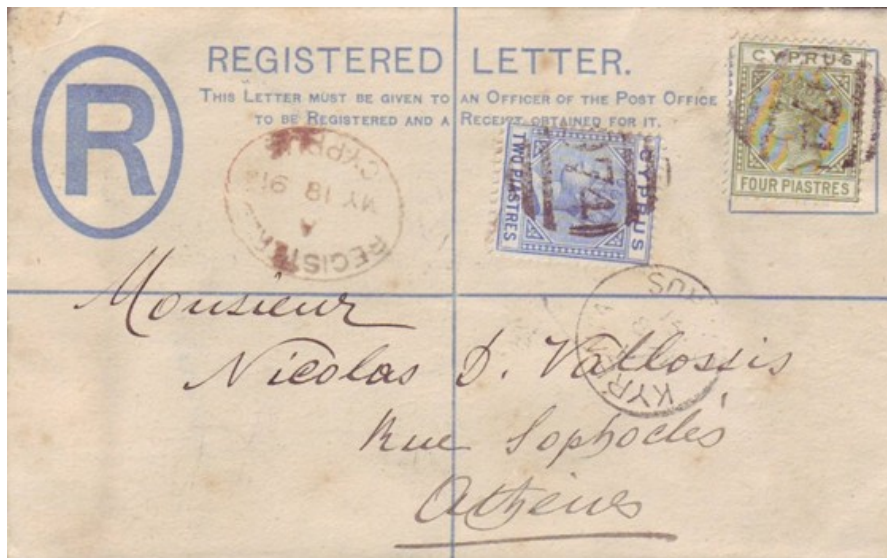 REGISTERED LETTER.
THIS LETTER MUST BE GIVEN TO AN OFFICER OF THE POST OFFICE
TO BE REGISTERED AND A RECEIPT OBTAINED FOR IT.
R
CYPRUS
FOUR PIASTRES
CYPRUS
TWO PIASTRES
974
CYPRUS
MY 18 91
A
REGISTERED
KYR
Monsieur
Nicolas D. Vatlossis
Rue Sophoclès
Athènes